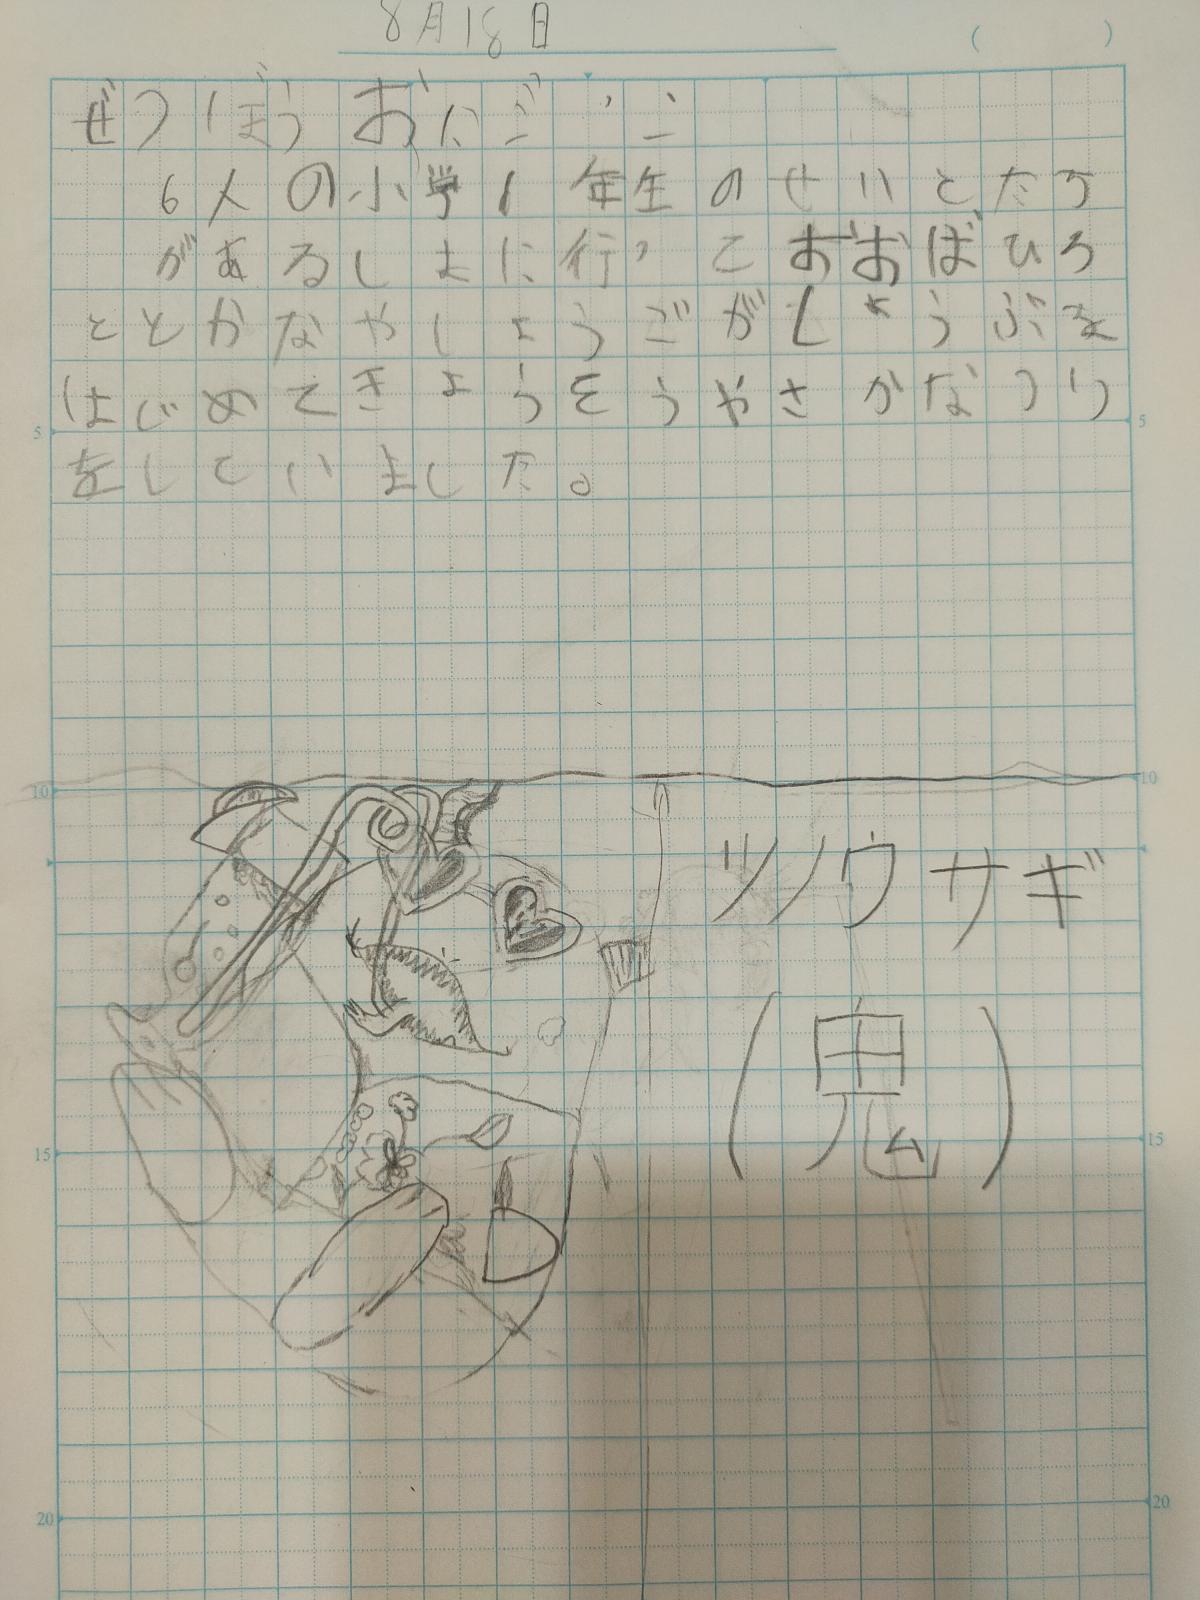 8月18日
ぜつぼうおにごっこ
6人の小学1年生のせいとたち
があるしまに行っておおばひろ
ととかなやしょうごがしょうぶを
はじめてきょうそうやさかなつり
をしていました。
ツノウサギ
(鬼)
5
5
10
10
15
15
20
20